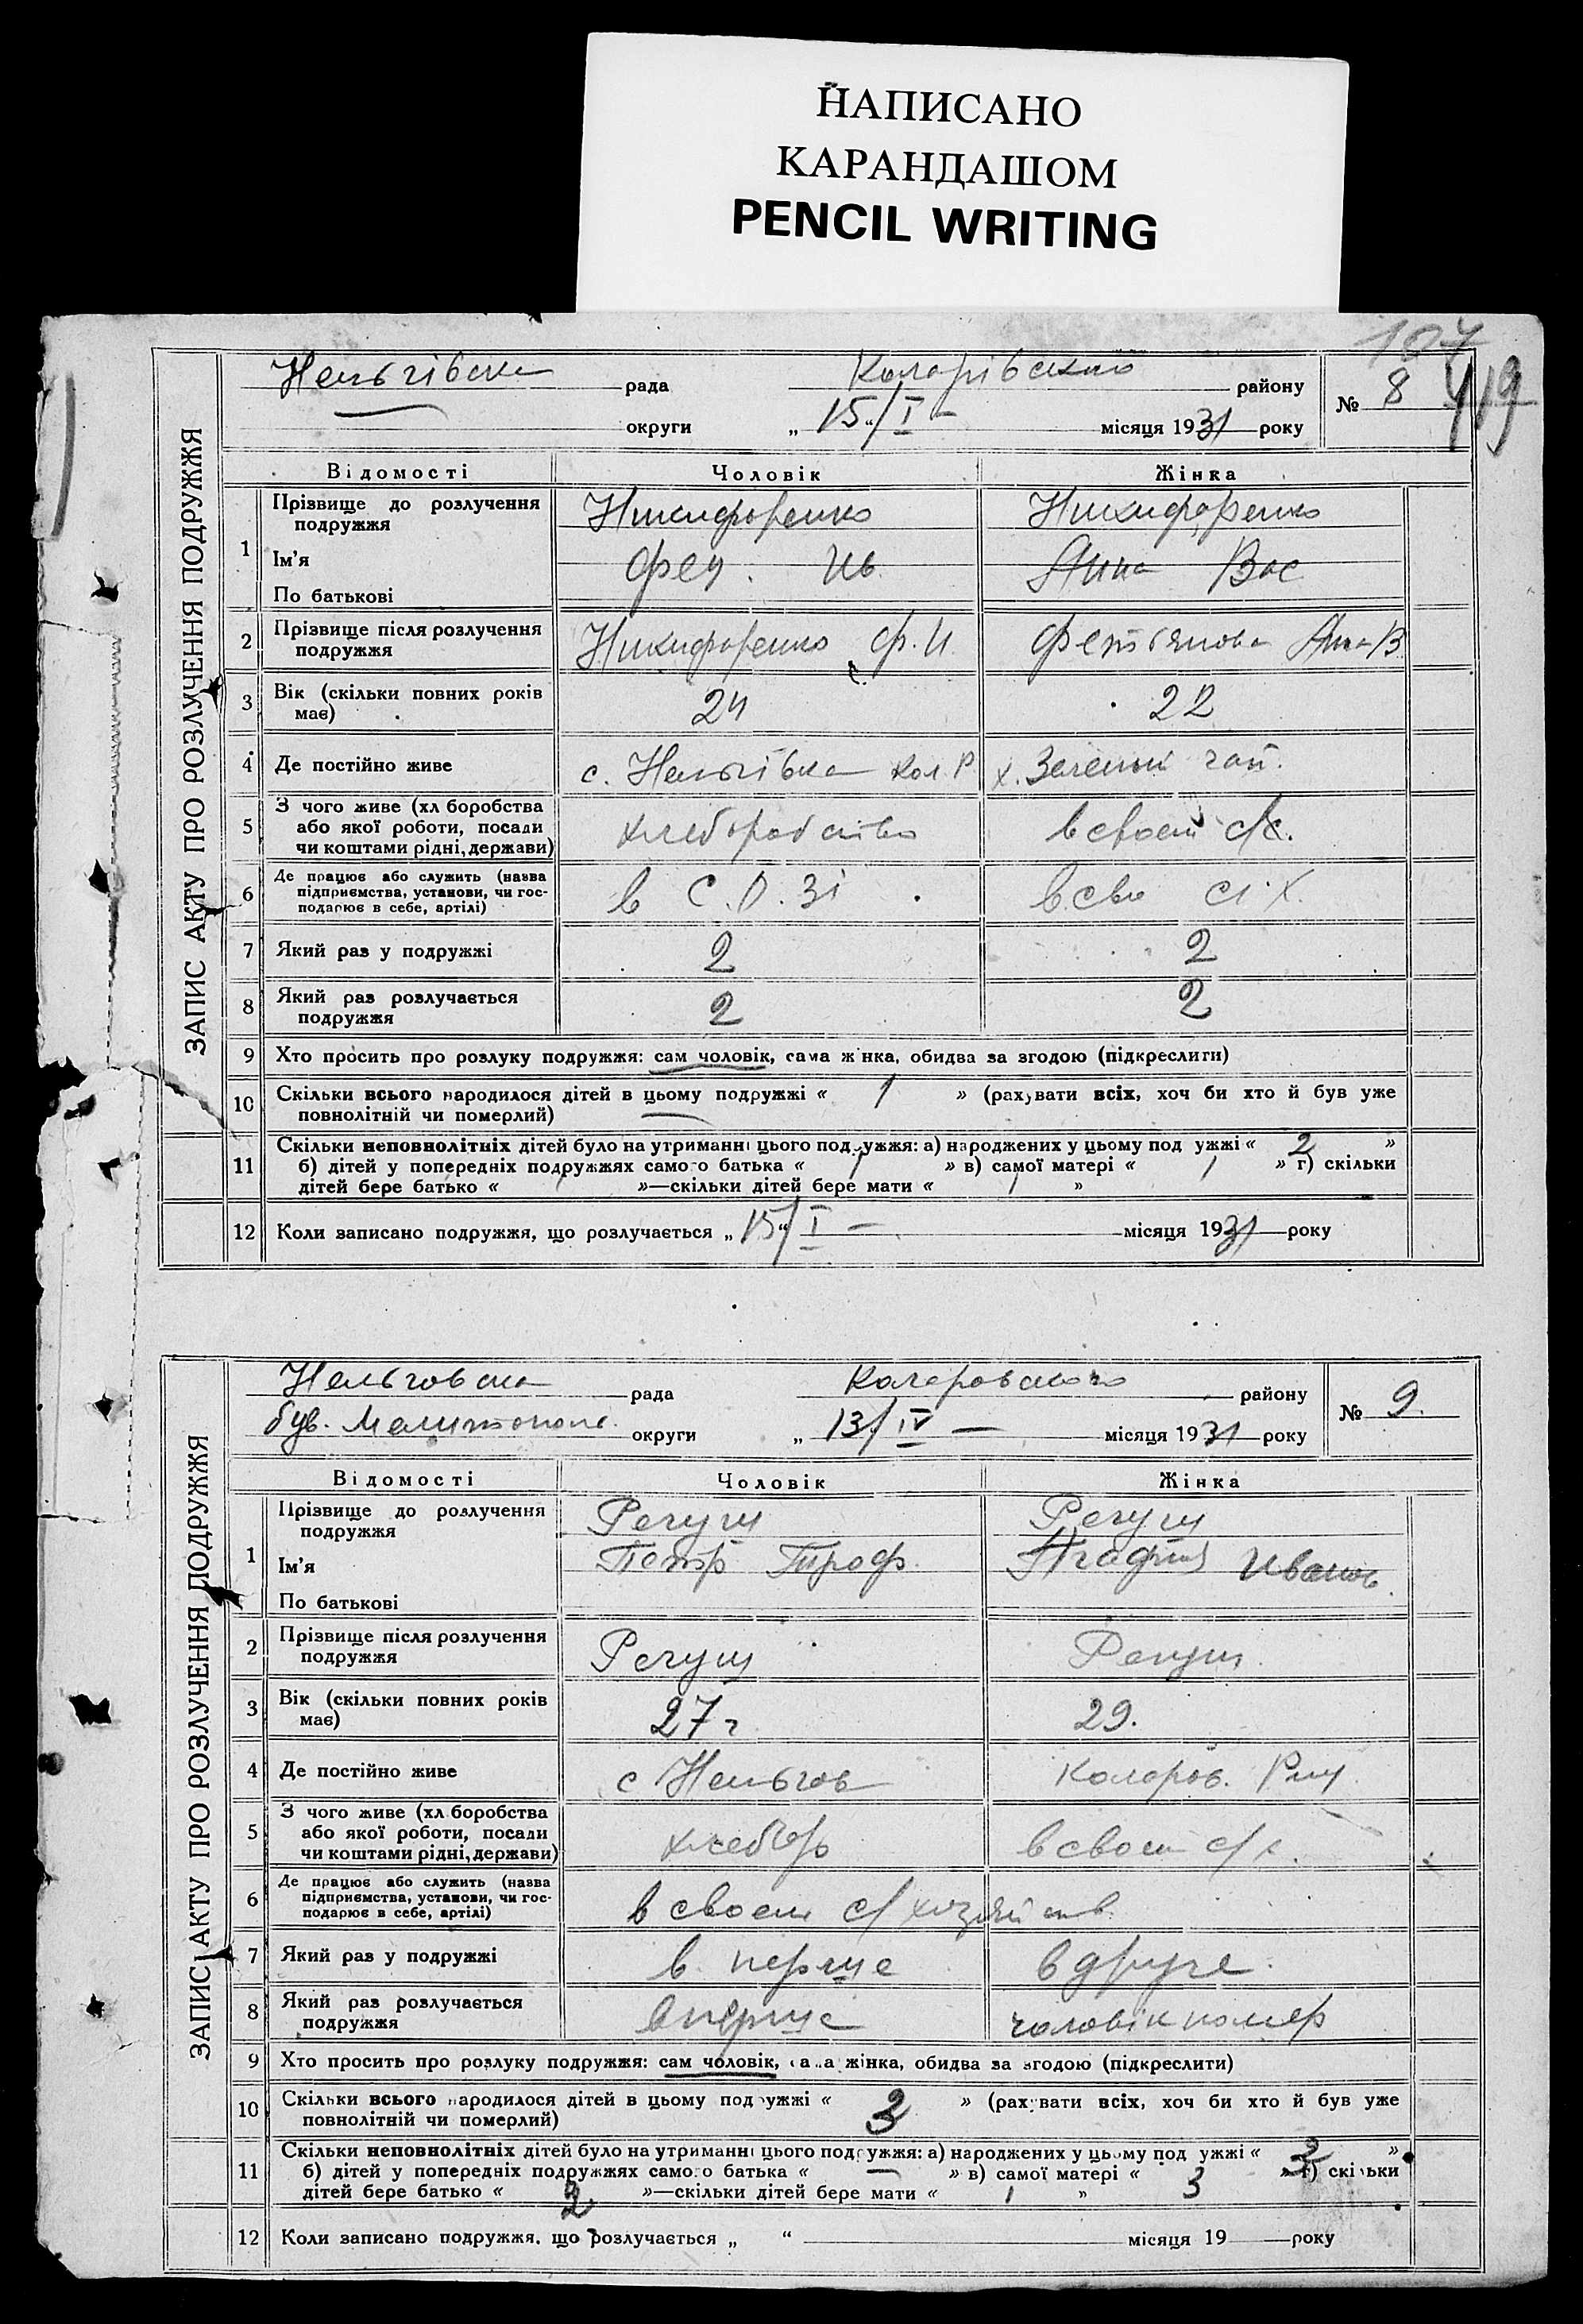 НАПИСАНО
КАРАНДАШОМ
PENCIL WRITING
107
419
ЗАПИС АКТУ ПРО РОЗЛУЧЕННЯ ПОДРУЖЖЯ
Нельгівська рада Коларівського району № 8
округи „15“/I — місяця 1931 року
Відомості Чоловік Жінка
1 Прізвище до розлучення подружжя Никифоренко Никифоренко
Ім'я Фед. Ив. Анна Вас
По батькові
2 Прізвище після розлучення подружжя Никифоренко Ф.И. Анна В
3 Вік (скільки повних років має) 24 22
4 Де постійно живе с. Нельгівка Кол. Р х. Зелений гай.
5 З чого живе (хл боробства або якої роботи, посади чи коштами рідні, держави) хлеборобство в своем с/х.
6 Де працює або служить (назва підприємства, установи, чи господарює в себе, артілі) в С.О.Зі в сво с.х.
7 Який раз у подружжі 2 2
8 Який раз розлучається подружжя 2 2
9 Хто просить про розлуку подружжя: сам чоловік, сама жінка, обидва за згодою (підкреслити)
10 Скільки всього народилося дітей в цьому подружжі « 1 » (рахувати всіх, хоч би хто й був уже
повнолітній чи померлий)
11 Скільки неповнолітніх дітей було на утриманні цього подружжя: а) народжених у цьому подружжі « 2 »
б) дітей у попередніх подружжях самого батька « 1 » в) самої матері « 1 » г) скільки
дітей бере батько « 1 »—скільки дітей бере мати « 1 »
12 Коли записано подружжя, що розлучається „15“/I — місяця 1931 року
ЗАПИС АКТУ ПРО РОЗЛУЧЕННЯ ПОДРУЖЖЯ
Нельговска рада Коларовського району № 9.
був. Мелитопол. округи „13/IV — місяця 1931 року
Відомості Чоловік Жінка
1 Прізвище до розлучення подружжя Регуш Регуш
Ім'я Петр Троф. Агафия Иванов.
По батькові
2 Прізвище після розлучення подружжя Регуш Регуш
3 Вік (скільки повних років має) 27 г 29.
4 Де постійно живе с Нельгов Колоров. Р
5 З чого живе (хл боробства або якої роботи, посади чи коштами рідні, держави) хлебор в своем с/х.
6 Де працює або служить (назва підприємства, установи, чи господарює в себе, артілі) в своем с/хозяйств.
7 Який раз у подружжі в перше в друге.
8 Який раз розлучається подружжя вперше чоловік помер
9 Хто просить про розлуку подружжя: сам чоловік, сама жінка, обидва за згодою (підкреслити)
10 Скільки всього народилося дітей в цьому подружжі « 3 » (рахувати всіх, хоч би хто й був уже
повнолітній чи померлий)
11 Скільки неповнолітніх дітей було на утриманні цього подружжя: а) народжених у цьому подружжі « 3 »
б) дітей у попередніх подружжях самого батька « — » в) самої матері « 3 » г) скільки
дітей бере батько « 2 »—скільки дітей бере мати « 1 »
12 Коли записано подружжя, що розлучається „ “ місяця 19 року